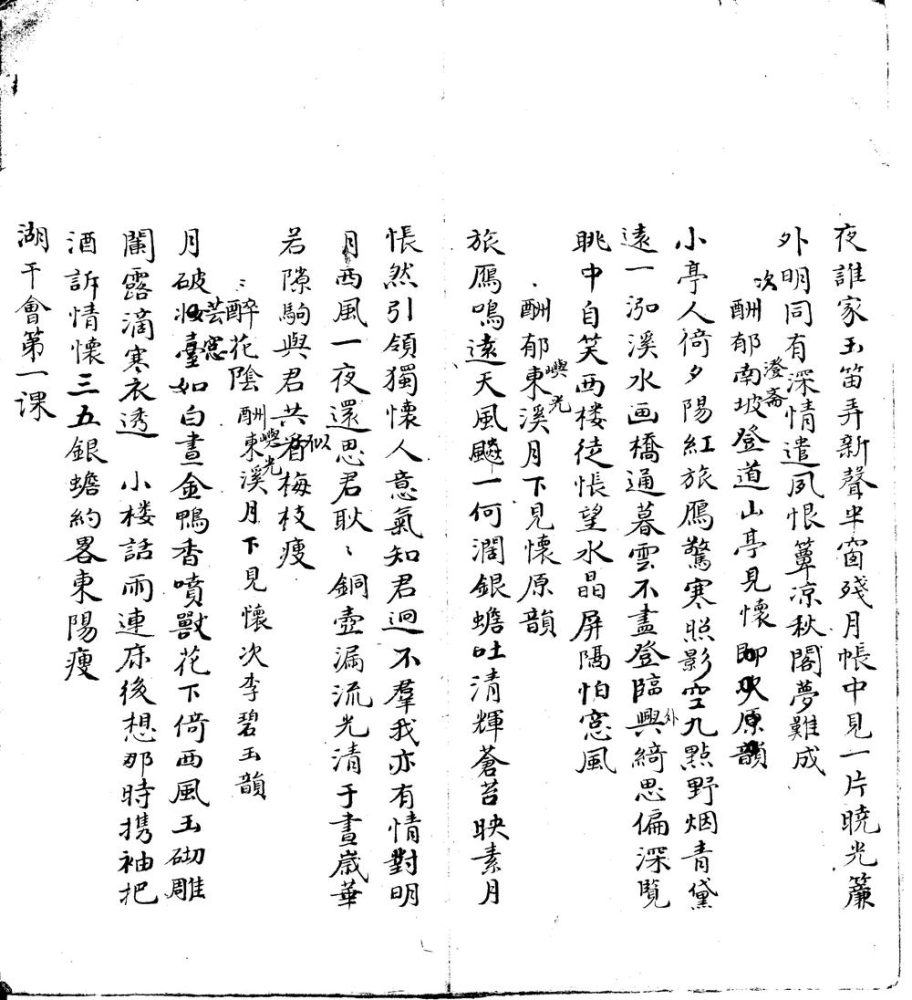 夜誰家玉笛弄新聲半窗殘月帳中見一片曉光簾
外明同有深情遣夙恨簟凉秋閣夢難成
次酬郁南坡澄齋登道山亭見懷即次原韻
小亭人倚夕陽紅旅鴈驚寒照影空九點野烟青黛
遠一泓溪水画橋通暮雲不盡登臨興外綺思偏深覽
眺中自笑西楼徒悵望水晶屏隔怕窓風
酬郁東溪嶼光月下見懷原韻
旅鴈鳴遠天風飈一何濶銀蟾吐清輝蒼苔映素月
悵然引領獨懷人意氣知君迥不羣我亦有情對明
月西風一夜還思君耿〻銅壺漏流光清于晝歲華
若隙駒與君共看似梅枝瘦
〻醉花陰酬東溪嶼光月下見懷次李碧玉韻
月破妝臺芸窓如白晝金鴨香噴獸花下倚西風玉砌雕
闌露滴寒衣透 小楼話雨連床後想那時携袖把
酒訴情懷三五銀蟾約畧東陽瘦
湖干會第一课